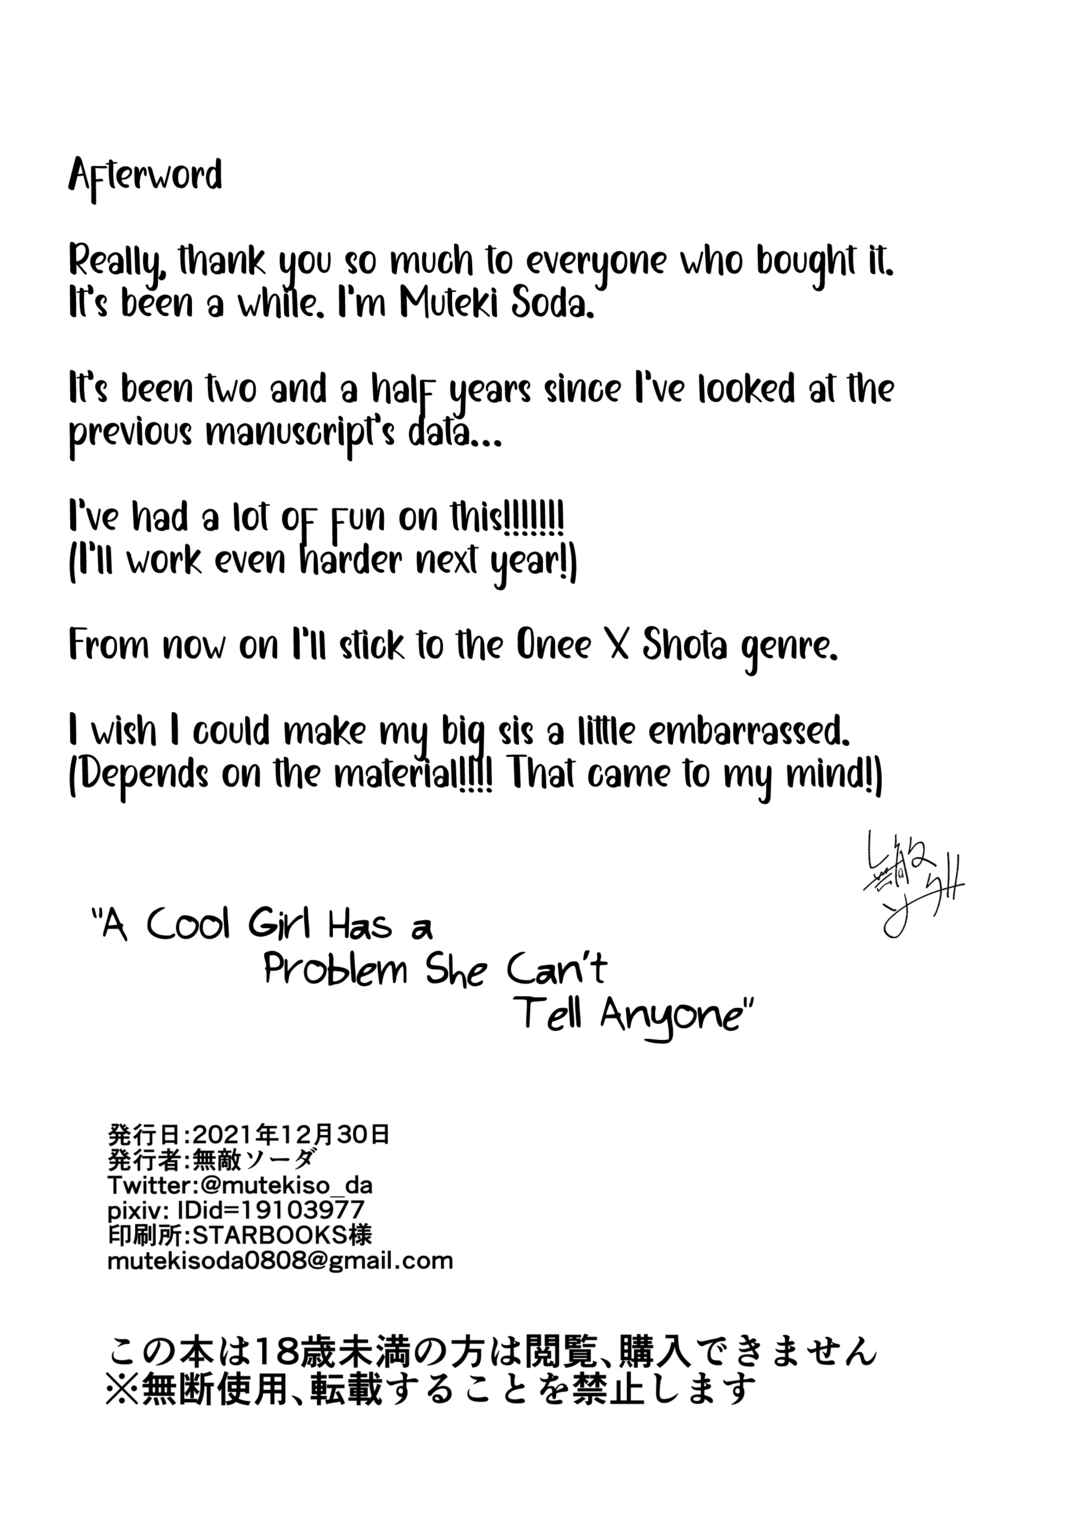 Afterword
Really, thank you so much to everyone who bought it.
It's been a while. I'm Muteki Soda.
It's been two and a half years since I've looked at the
previous manuscript's data...
I've had a lot of fun on this!!!!!!!
(I'll work even harder next year!)
From now on I'll stick to the Onee X Shota genre.
I wish I could make my big sis a little embarrassed.
(Depends on the material!!!! That came to my mind!)
無敵
ソーダ
"A Cool Girl Has a
Problem She Can't
Tell Anyone"
発行日:2021年12月30日
発行者:無敵ソーダ
Twitter:@mutekiso_da
pixiv: IDid=19103977
印刷所:STARBOOKS様
mutekisoda0808@gmail.com
この本は18歳未満の方は閲覧、購入できません
※無断使用、転載することを禁止します